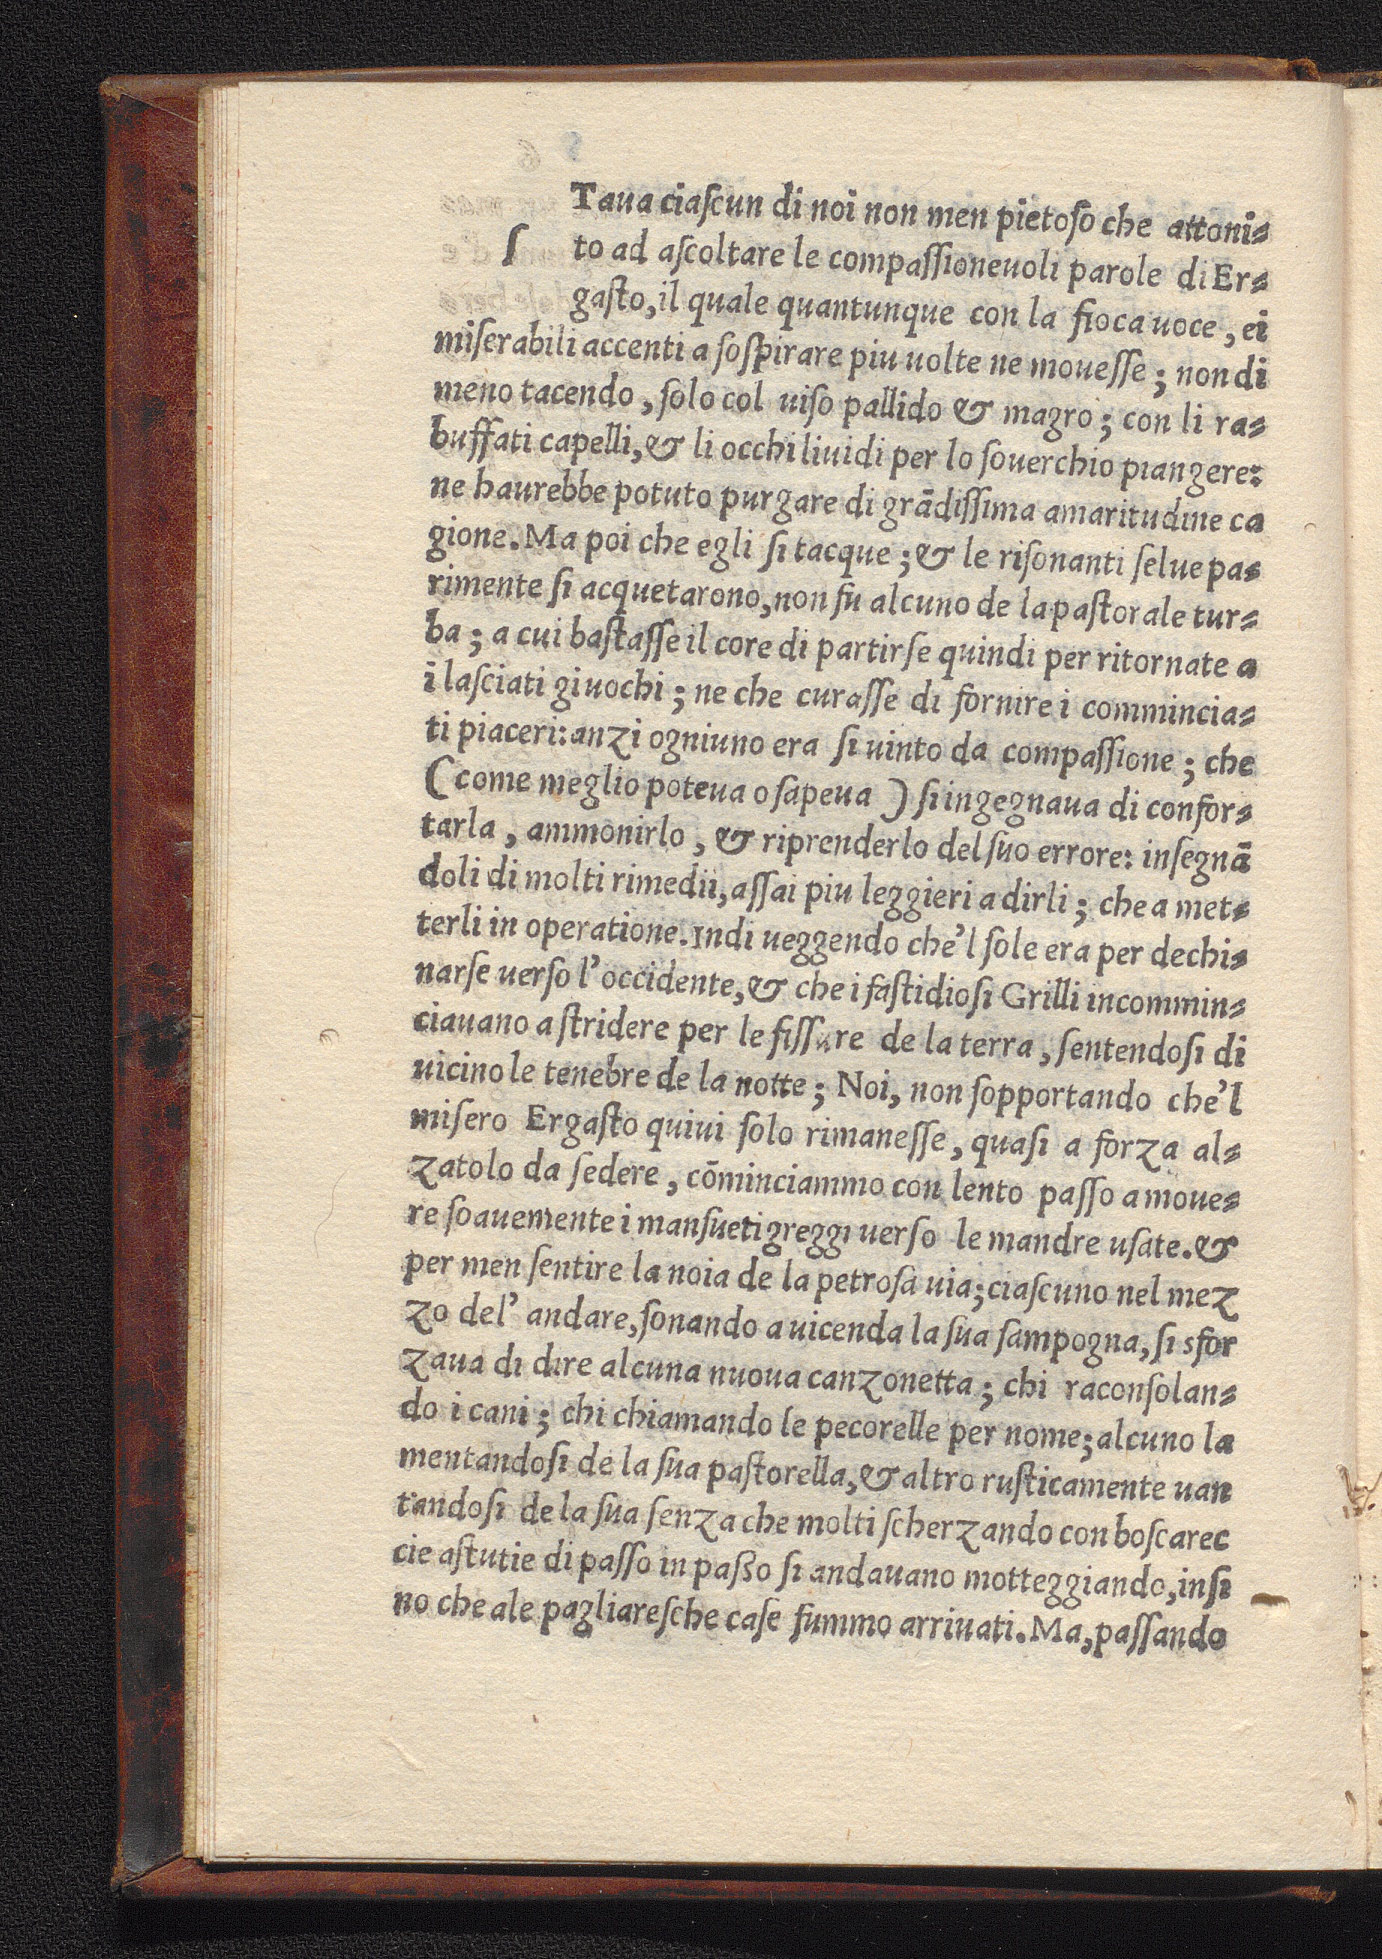 Taua ciaſcun di noi non men pietoſo che attoni⸗
ſ to ad aſcoltare le compaſſioneuoli parole di Er⸗
gaſto, il quale quantunque con la fioca uoce, ei
miſerabili accenti a ſoſpirare piu uolte ne moueſſe; non di
meno tacendo, ſolo col uiſo pallido & magro; con li ra⸗
buffati capelli, & li occhi liuidi per lo ſouerchio piangere:
ne haurebbe potuto purgare di grādiſſima amaritudine ca
gione. Ma poi che egli ſi tacque; & le riſonanti ſelue pa⸗
rimente ſi acquetarono, non fu alcuno de la paſtorale tur⸗
ba; a cui baſtaſſe il core di partirſe quindi per ritornate a
i laſciati giuochi; ne che curaſſe di fornire i commincia⸗
ti piaceri: anzi ogniuno era ſi uinto da compaſſione; che
(come meglio poteua o ſapeua ) ſi ingegnaua di confor⸗
tarla, ammonirlo, & riprenderlo del ſuo errore: inſegnā
doli di molti rimedii, aſſai piu leggieri a dirli; che a met⸗
terli in operatione. Indi ueggendo che'l ſole era per dechi⸗
narſe uerſo l'occidente, & che i faſtidioſi Grilli incommin⸗
ciauano a ſtridere per le fiſſure de la terra, ſentendoſi di
uicino le tenebre de la notte; Noi, non ſopportando che'l
miſero Ergaſto quiui ſolo rimaneſſe, quaſi a forza al⸗
zatolo da ſedere, cōminciammo con lento paſſo a moue⸗
re ſoauemente i manſueti greggi uerſo le mandre uſate. &
per men ſentire la noia de la petroſa uia; ciaſcuno nel mez
zo del' andare, ſonando a uicenda la ſua ſampogna, ſi sfor
zaua di dire alcuna nuoua canzonetta; chi raconſolan⸗
do i cani; chi chiamando le pecorelle per nome; alcuno la
mentandoſi de la ſua paſtorella, & altro ruſticamente uan
tandoſi de la ſua ſenza che molti ſcherzando con boſcarec
cie aſtutie di paſſo in paßo ſi andauano motteggiando, inſi
no che ale pagliareſche caſe fummo arriuati. Ma, paſſando